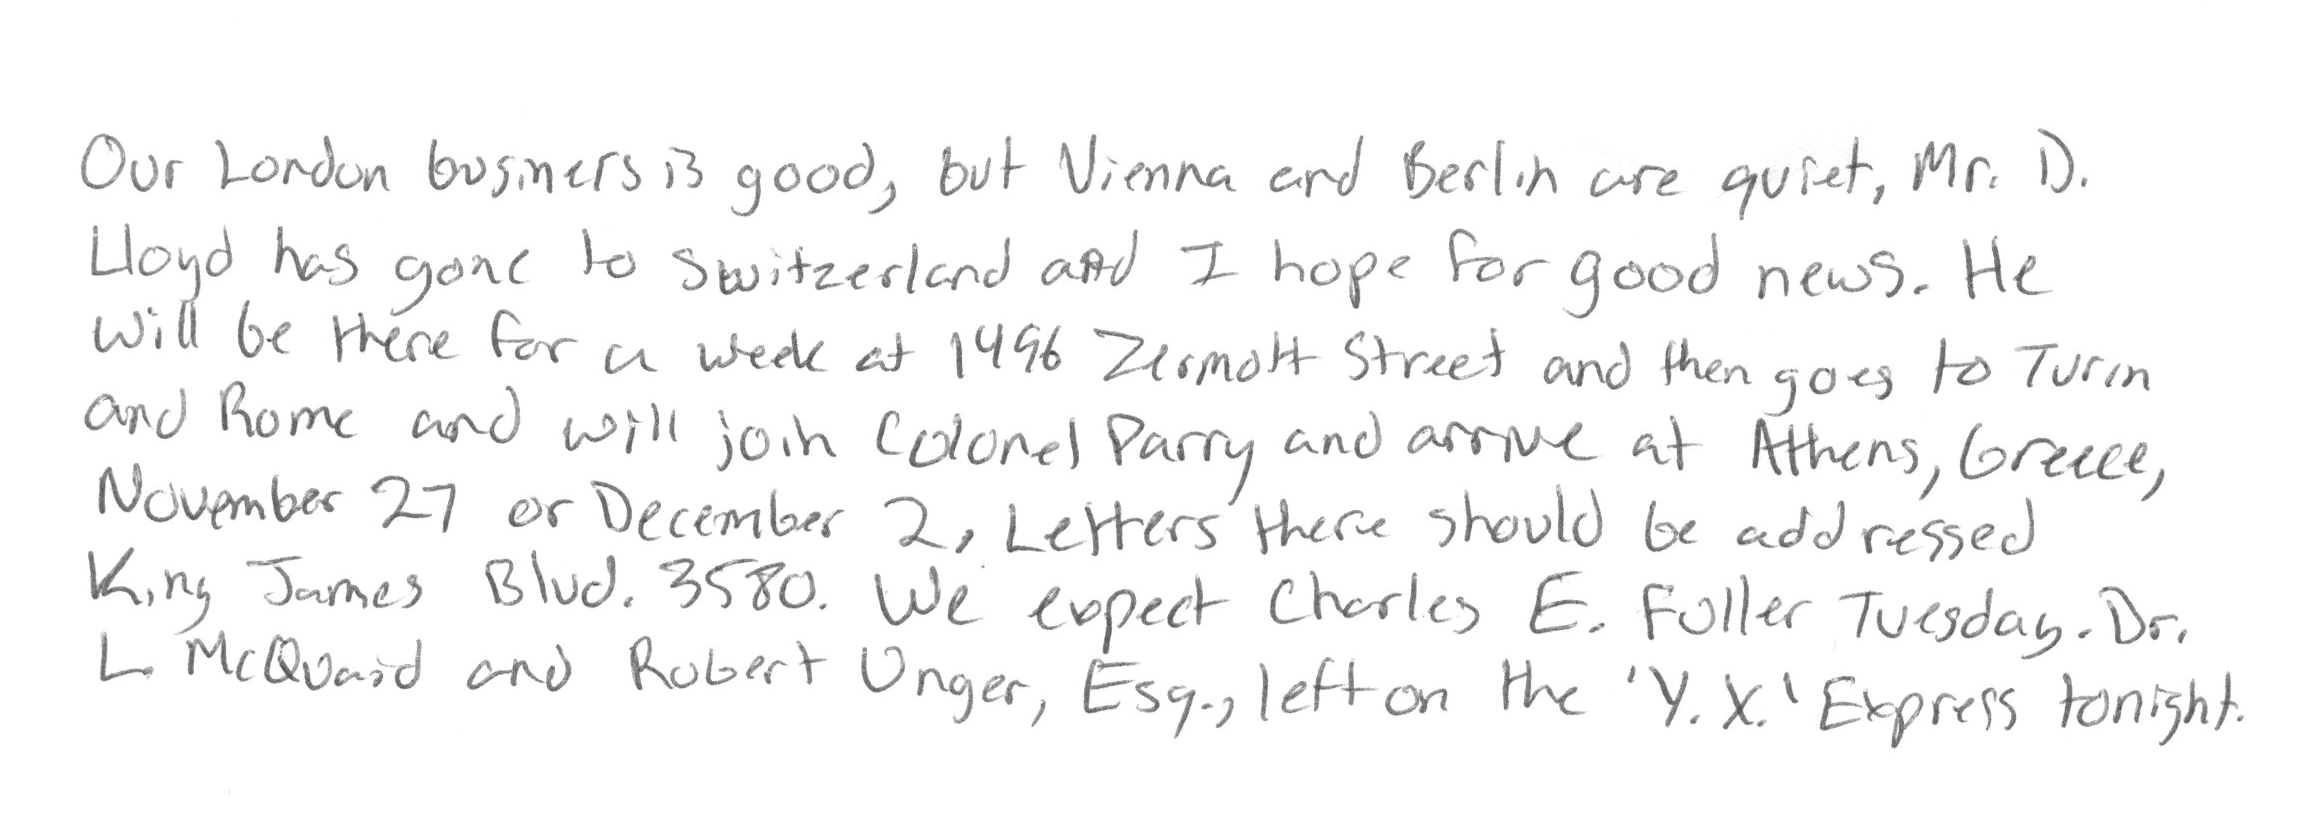 Our London business is good, but Vienna and Berlin are quiet, Mr. D.
Lloyd has gone to Switzerland and I hope for good news. He
will be there for a week at 1496 Zermott Street and then goes to Turin
and Rome and will join Colonel Parry and arrive at Athens, Greece,
November 27 or December 2, Letters there should be addressed
King James Blvd. 3580. We expect Charles E. Fuller Tuesday. Dr.
L. McQuaid and Robert Unger, Esq., left on the 'Y. X.' Express tonight.